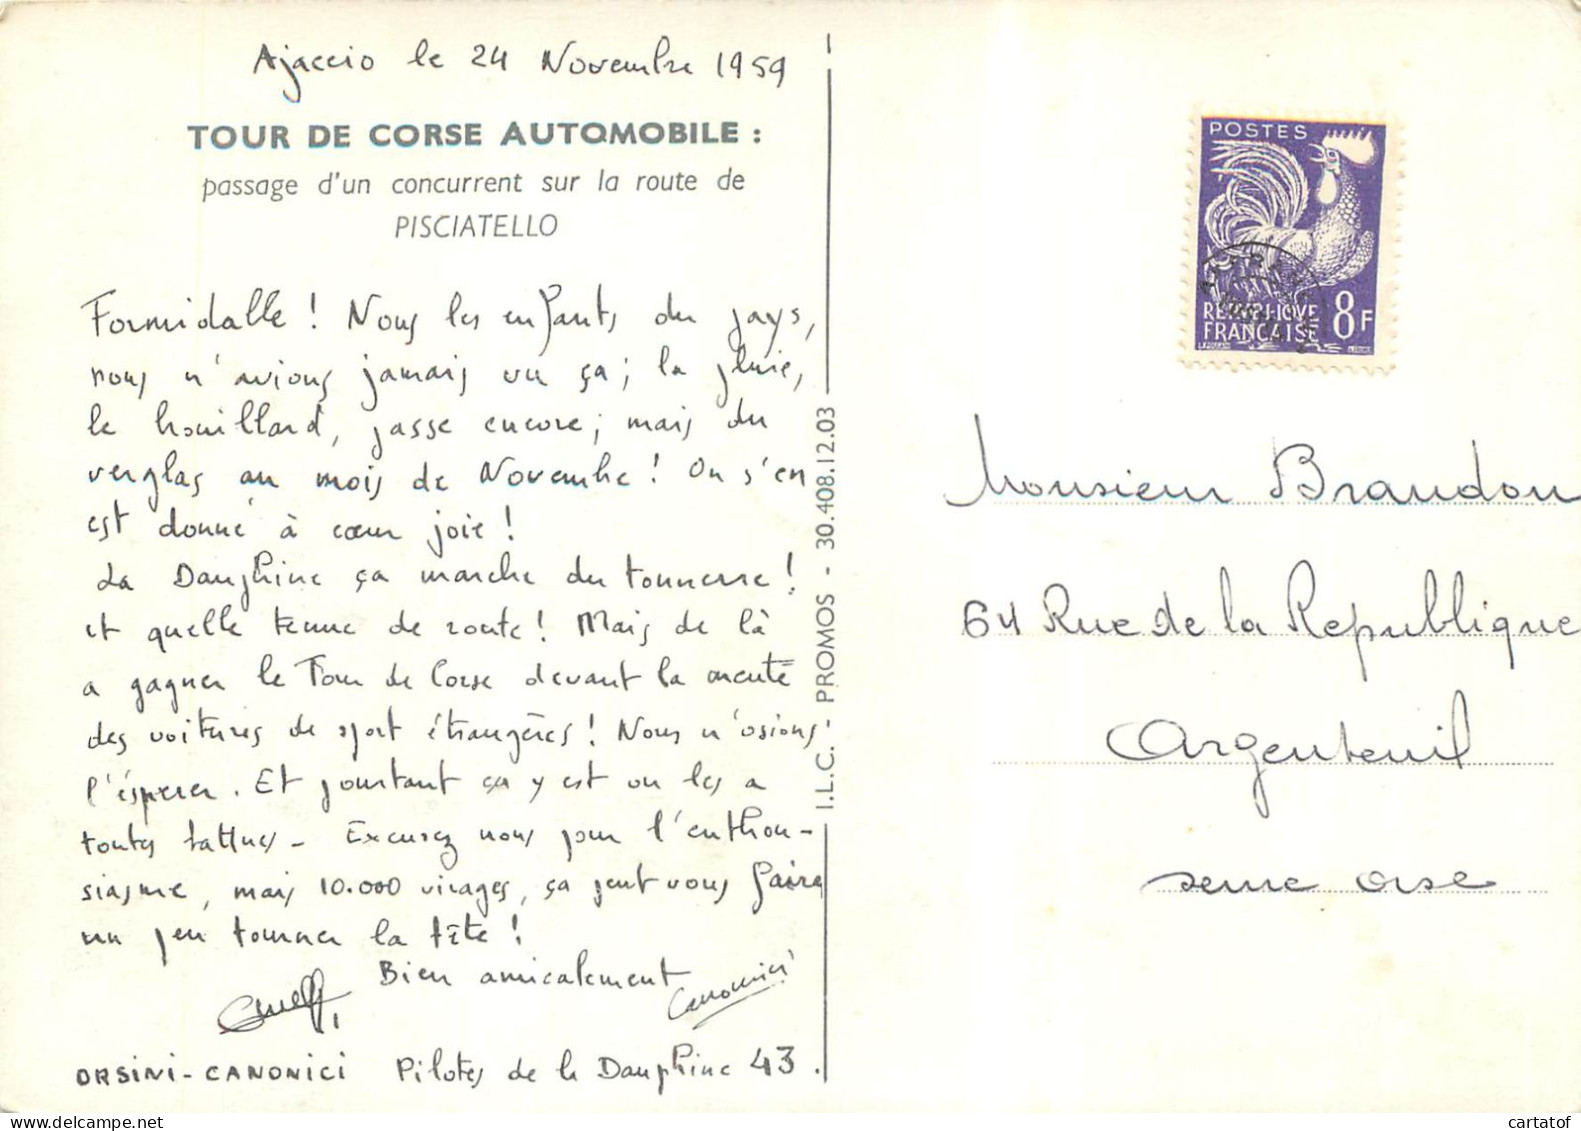 Ajaccio le 24 Novembre 1959
TOUR DE CORSE AUTOMOBILE :
passage d'un concurrent sur la route de
PISCIATELLO
Formidable ! Nous les enfants du pays,
nous n'avions jamais vu ça ; la pluie,
le brouillard, passe encore ; mais du
verglas au mois de Novembre ! On s'en
est donné à cœur joie !
La Dauphine ça marche du tonnerre !
et quelle tenue de route ! Mais de là
a gagner le Tour de Corse devant la meute
des voitures de sport étrangères ! Nous n'osions
l'éspérer. Et pourtant ça y est on les a
toutes battues - Excusez nous pour l'enthou-
siasme, mais 10.000 virages, ça peut vous faire
un peu tourner la tête !
Bien amicalement
Canonici
ORSINI-CANONICI Pilotes de la Dauphine 43.
I.L.C. - PROMOS - 30.408.12.03
POSTES
REPUBLIQUE
FRANÇAISE 8F
Monsieur Brandon
64 Rue de la Republique
Argenteuil
seine oise
cartatof